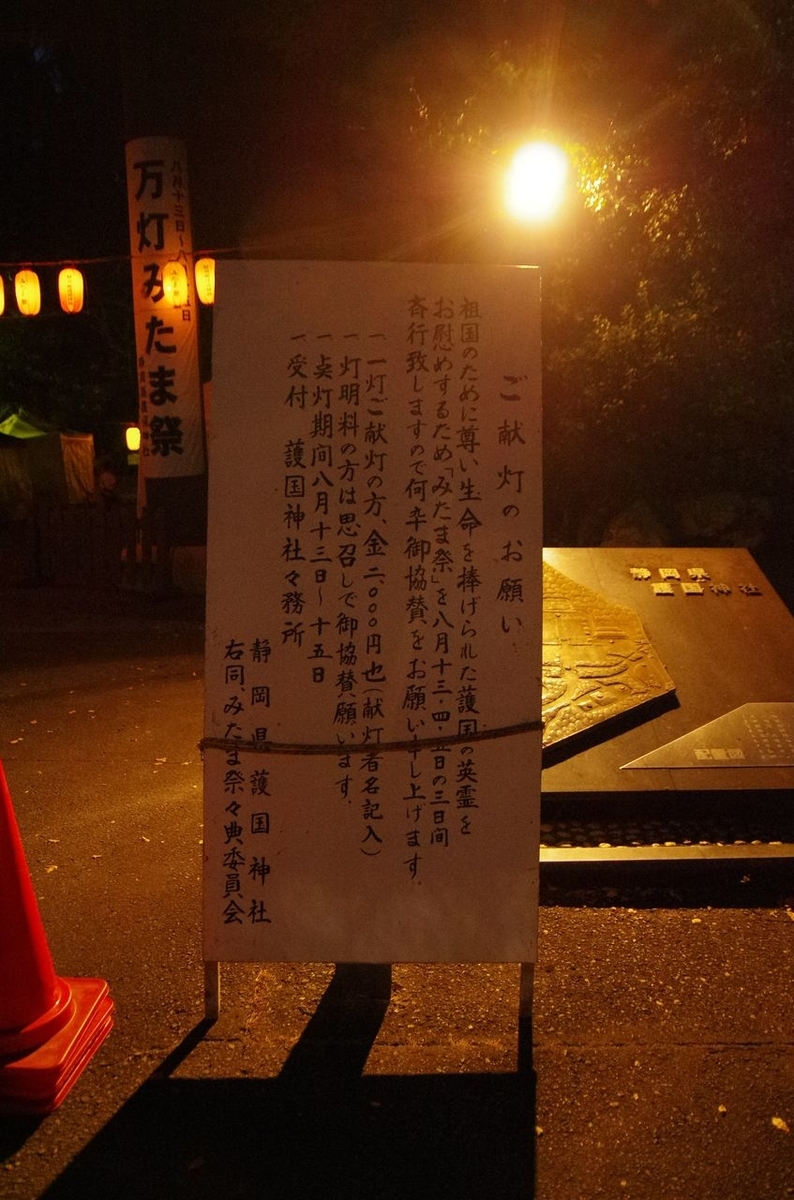 ご献灯のお願い
祖国のために尊い生命を捧げられた護国の英霊を
お慰めするため「みたま祭」を八月十三・四・五日の三日間
斉行致しますので何卒御協賛をお願い申し上げます
一 一灯ご献灯の方、金二、〇〇〇円也(献灯者名記入)
一 灯明料の方は思召しで御協賛願います
一 点灯期間八月十三日〜十五日
一 受付 護国神社々務所
静岡県護国神社
右同みたま祭々典委員会
万灯みたま祭
静岡県
護国神社